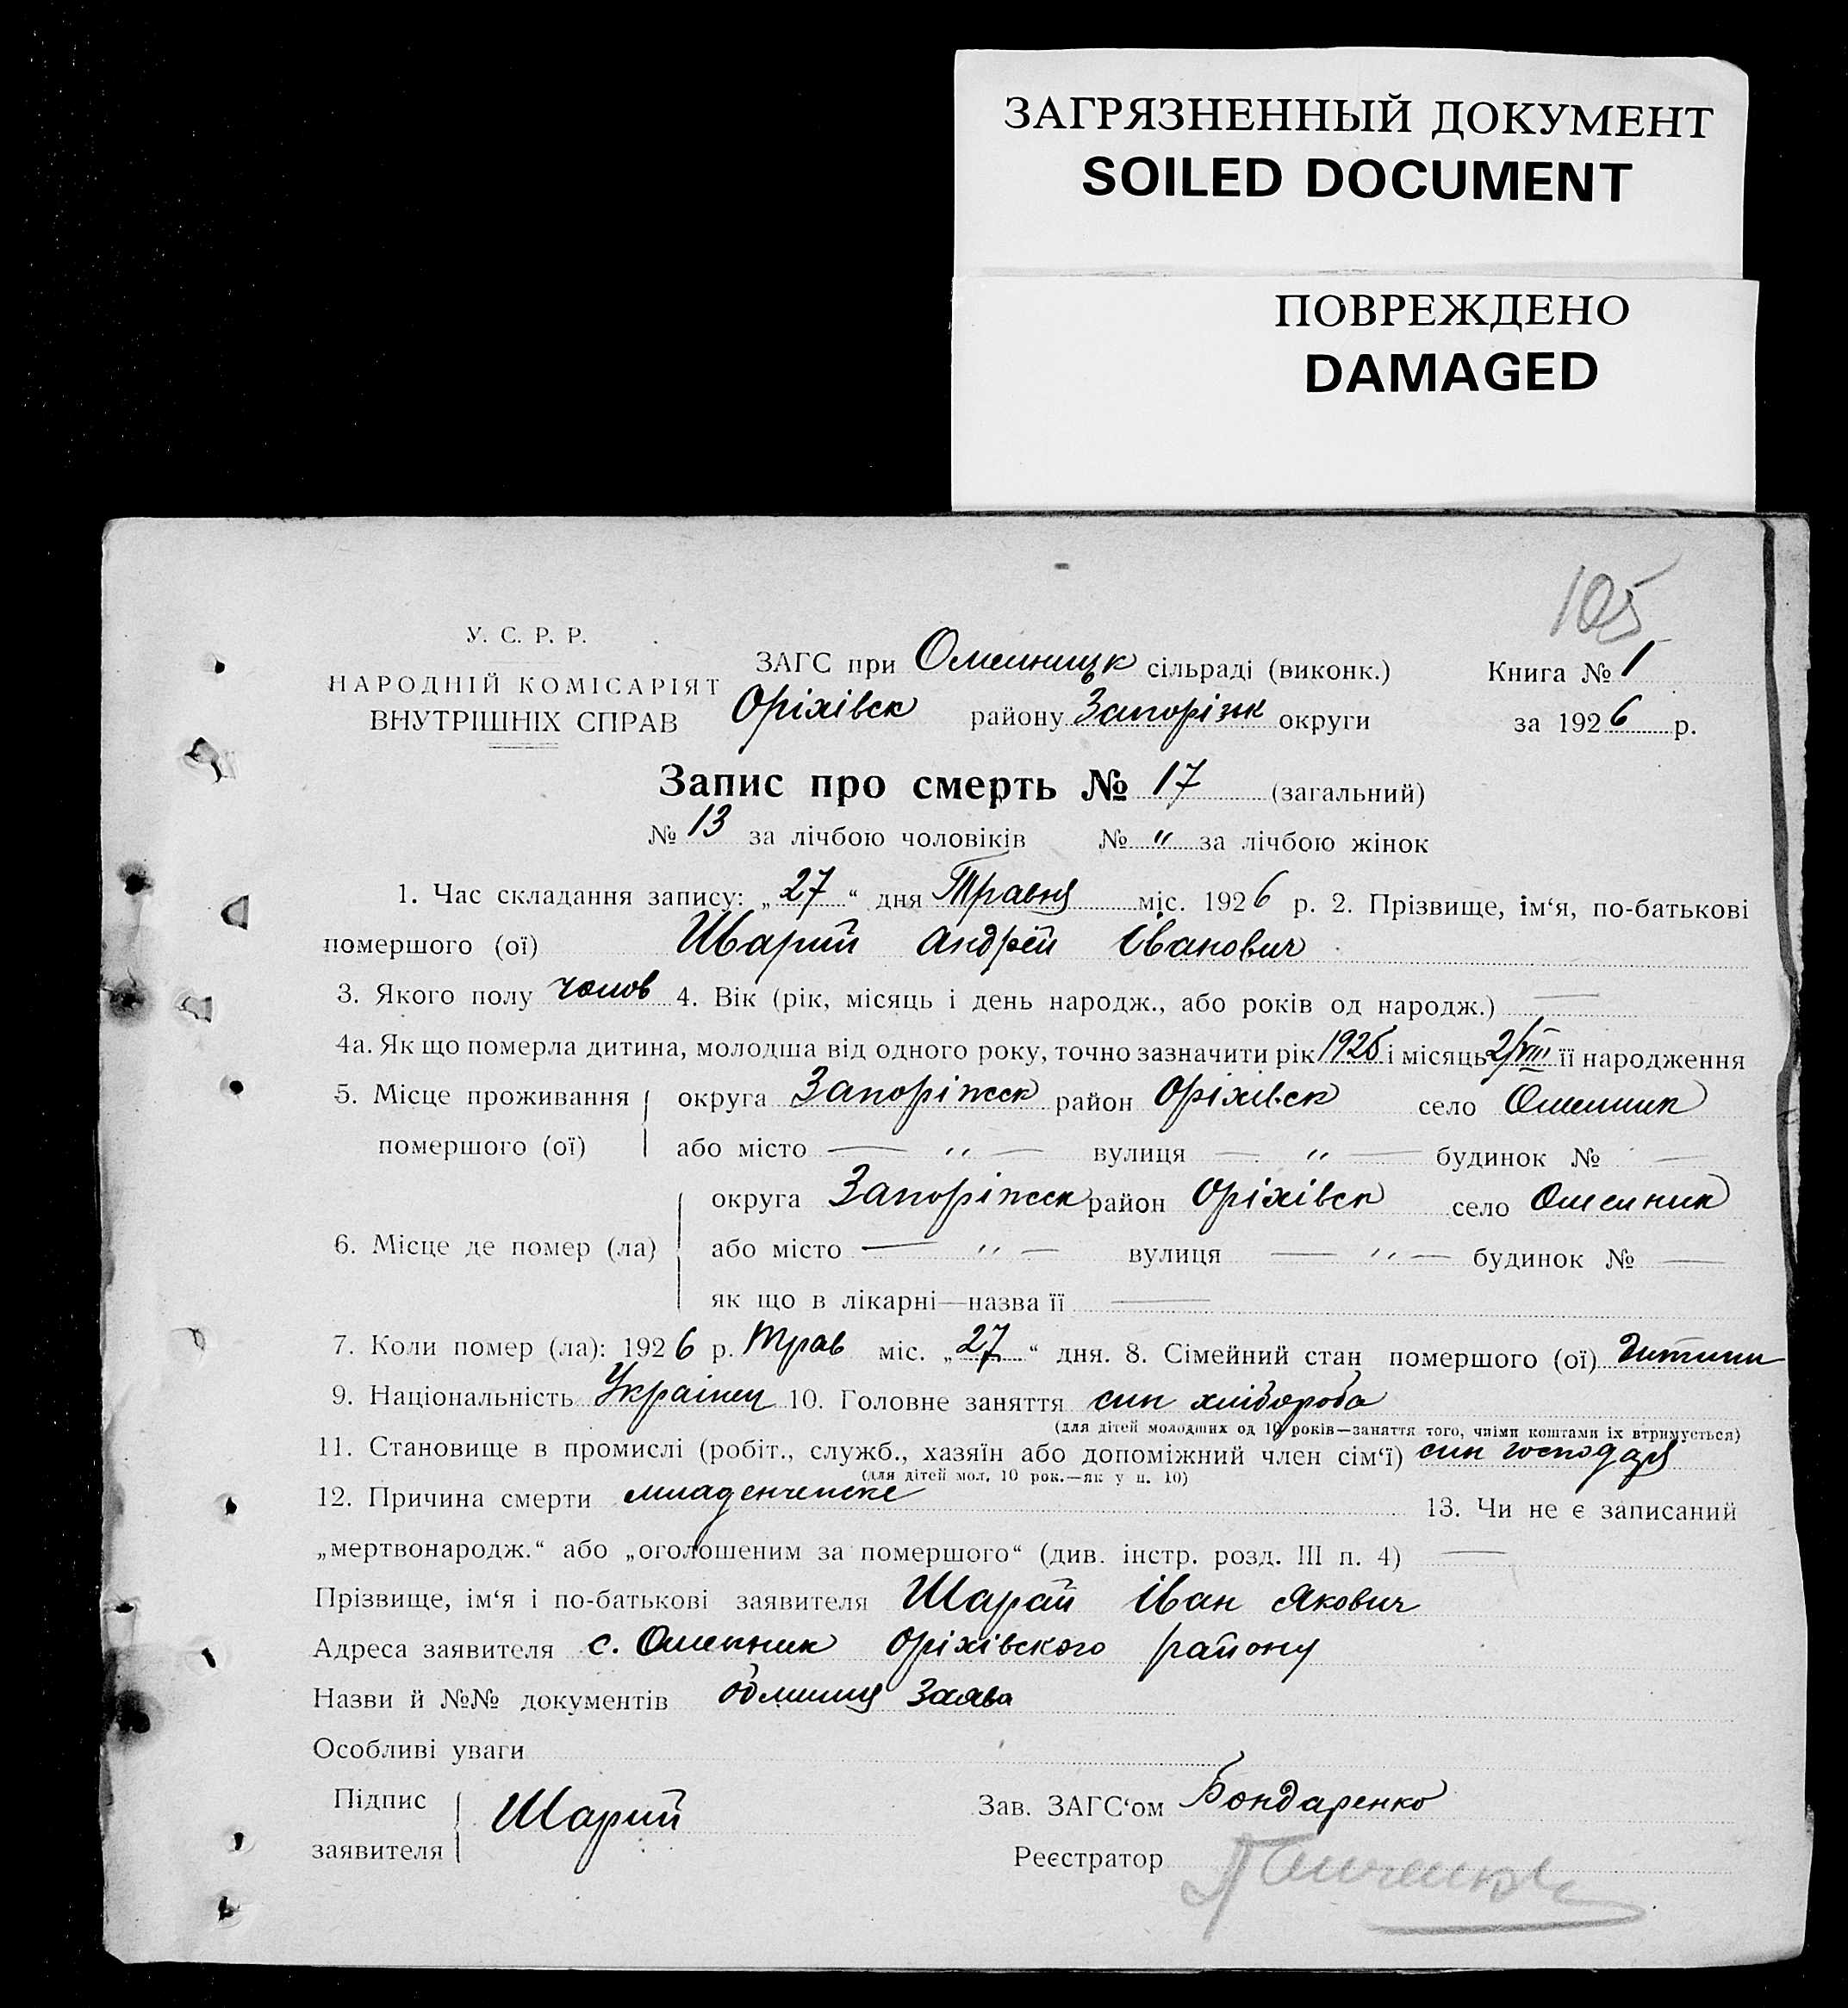 ЗАГРЯЗНЕННЫЙ ДОКУМЕНТ
SOILED DOCUMENT
ПОВРЕЖДЕНО
DAMAGED
105
У. С. Р. Р.
НАРОДНІЙ КОМІСАРІЯТ
ВНУТРІШНІХ СПРАВ
ЗАГС при Омельницьк сільраді (виконк.) Книга № 1
Оріхівск району Запоріжк округи за 1926 р.
Запис про смерть № 17 (загальний)
№ 13 за лічбою чоловіків № " за лічбою жінок
1. Час складання запису: „27“ дня Травня міс. 1926 р. 2. Прізвище, ім‘я, по-батькові
помершого (ої) Шварий Андрей Іванович
3. Якого полу чолов 4. Вік (рік, місяць і день народж., або років од народж.) —
4а. Як що померла дитина, молодша від одного року, точно зазначити рік 1925 і місяць 2/VIII її народження
5. Місце проживання помершого (ої) округа Запоріжск район Оріхівск село Омельник
або місто — " — вулиця — " — будинок № —
6. Місце де помер (ла) округа Запоріжск район Оріхівск село Омельник
або місто — " — вулиця — " — будинок № —
як що в лікарні—назва її —
7. Коли помер (ла): 1926 р. Трав міс. „27“ дня. 8. Сімейний стан помершого (ої) дитина
9. Національність Украінец 10. Головне заняття син хлібороба
(для дітей молодших од 10 років—заняття того, чиїми коштами їх втримується)
11. Становище в промислі (робіт., служб., хазяїн або допоміжний член сім‘ї) син господаря
(для дітей мол. 10 рок.—як у п. 10)
12. Причина смерти младенческе 13. Чи не є записаний
„мертвонародж.“ або „оголошеним за помершого“ (див. інстр. розд. III п. 4) —
Прізвище, ім‘я і по-батькові заявителя Шарай Іван Якович
Адреса заявителя с. Омельник Оріхівского району
Назви й №№ документів заява
Особливі уваги
Підпис заявителя Шарий
Зав. ЗАГС‘ом Бондаренко
Реєстратор